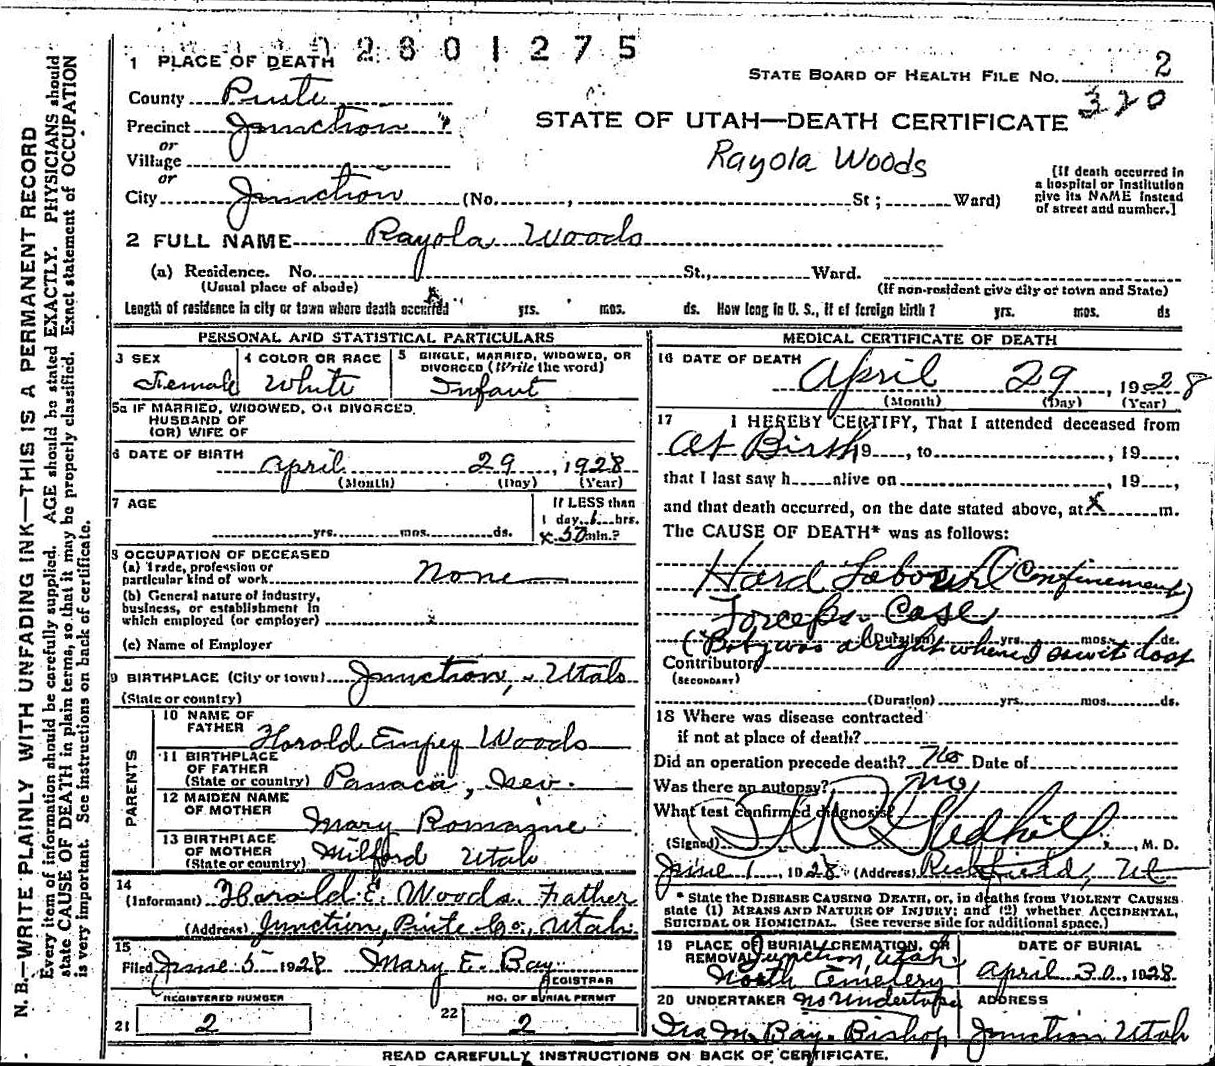 2801275
1 PLACE OF DEATH
STATE BOARD OF HEALTH FILE NO. 2
320
County Piute
STATE OF UTAH—DEATH CERTIFICATE
Precinct Junction
or
Rayola Woods
Village
or
[If death occurred in a hospital or institution give its NAME instead of street and number.]
City Junction (No. , St; Ward)
2 FULL NAME Rayola Woods
(a) Residence. No. St., Ward.
(Usual place of abode) (If non-resident give city or town and State)
Length of residence in city or town where death occurred yrs. mos. ds. How long in U. S., if of foreign birth? yrs. mos. ds
PERSONAL AND STATISTICAL PARTICULARS
3 SEX Female
4 COLOR OR RACE White
5 SINGLE, MARRIED, WIDOWED, OR DIVORCED (Write the word) Infant
5a IF MARRIED, WIDOWED, OR DIVORCED
HUSBAND OF
(OR) WIFE OF
6 DATE OF BIRTH
April 29, 1928
(Month) (Day) (Year)
7 AGE
yrs. mos. ds.
If LESS than
1 day 1 hrs.
x 50 min.?
8 OCCUPATION OF DECEASED
(a) Trade, profession or
particular kind of work None
(b) General nature of industry,
business, or establishment in
which employed (or employer) x
(c) Name of Employer
9 BIRTHPLACE (City or town) Junction, Utah
(State or country)
PARENTS
10 NAME OF
FATHER Harold Empey Woods
11 BIRTHPLACE
OF FATHER
(State or country) Panaca, Nev.
12 MAIDEN NAME
OF MOTHER Mary Romagne
13 BIRTHPLACE
OF MOTHER
(State or country) Milford Utah
14
(Informant) Harold E. Woods. Father
(Address) Junction, Piute Co., Utah
15
Filed June 5 1928 Mary E. Bay
REGISTRAR
REGISTERED NUMBER
21 2
NO. OF BURIAL PERMIT
22 2
MEDICAL CERTIFICATE OF DEATH
16 DATE OF DEATH
April 29, 1928
(Month) (Day) (Year)
17 I HEREBY CERTIFY, That I attended deceased from
At Birth 19 , to , 19
that I last saw h alive on , 19 ,
and that death occurred, on the date stated above, at X m.
The CAUSE OF DEATH* was as follows:
Hard Labour (Confinement)
Forceps Case
(Duration) yrs. mos. ds.
(Baby was alright when I saw it last
Contributory
(SECONDARY)
(Duration) yrs. mos. ds.
18 Where was disease contracted
if not at place of death?
Did an operation precede death? No Date of
Was there an autopsy? no
What test confirmed diagnosis?
(Signed) Gledhill, M. D.
June 1, 1928 (Address) Richfield, Ut
* State the DISEASE CAUSING DEATH, or, in deaths from VIOLENT CAUSES
state (1) MEANS AND NATURE OF INJURY; and (2) whether ACCIDENTAL,
SUICIDAL OR HOMICIDAL. (See reverse side for additional space.)
19 PLACE OF BURIAL, CREMATION, OR
REMOVAL Junction, Utah
North Cemetery
DATE OF BURIAL
April 30, 1928
20 UNDERTAKER No Undertaker
Ira M. Bay. Bishop
ADDRESS
Junction Utah
READ CAREFULLY INSTRUCTIONS ON BACK OF CERTIFICATE.
N. B.—WRITE PLAINLY WITH UNFADING INK—THIS IS A PERMANENT RECORD
Every item of information should be carefully supplied. AGE should be stated EXACTLY. PHYSICIANS should
state CAUSE OF DEATH in plain terms, so that it may be properly classified. Exact statement of OCCUPATION
is very important. See instructions on back of certificate.